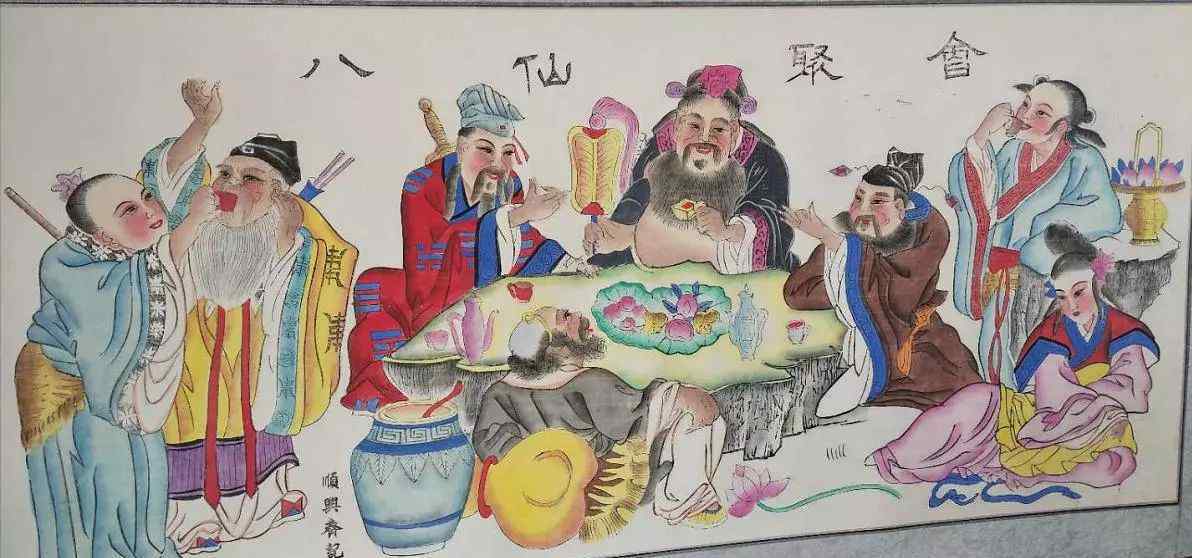 八仙聚會
順興齋記